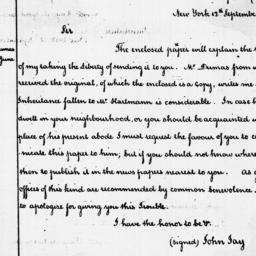 New York 12th September
Sir
The enclosed paper will explain the
of my taking the liberty of sending it to you. Mr Dumas from w
received the original, of which the enclosed is a Copy, writes me
Inheritance fallen to Mr Hartmann is considerable. In case h
dwell in your neighbourhood, or you should be acquainted w
place of his present abode I must request the favour of you to c
nicate this paper to him; but if you should not know where
then to publish it in the news papers nearest to you. As g
offices of this kind are recommended by common benevolence.
to apologize for giving you this Trouble.
I have the honor to be &c
(signed) John Jay